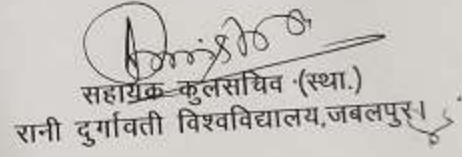 सहायक कुलसचिव (स्था.)
रानी दुर्गावती विश्वविद्यालय,जबलपुर।